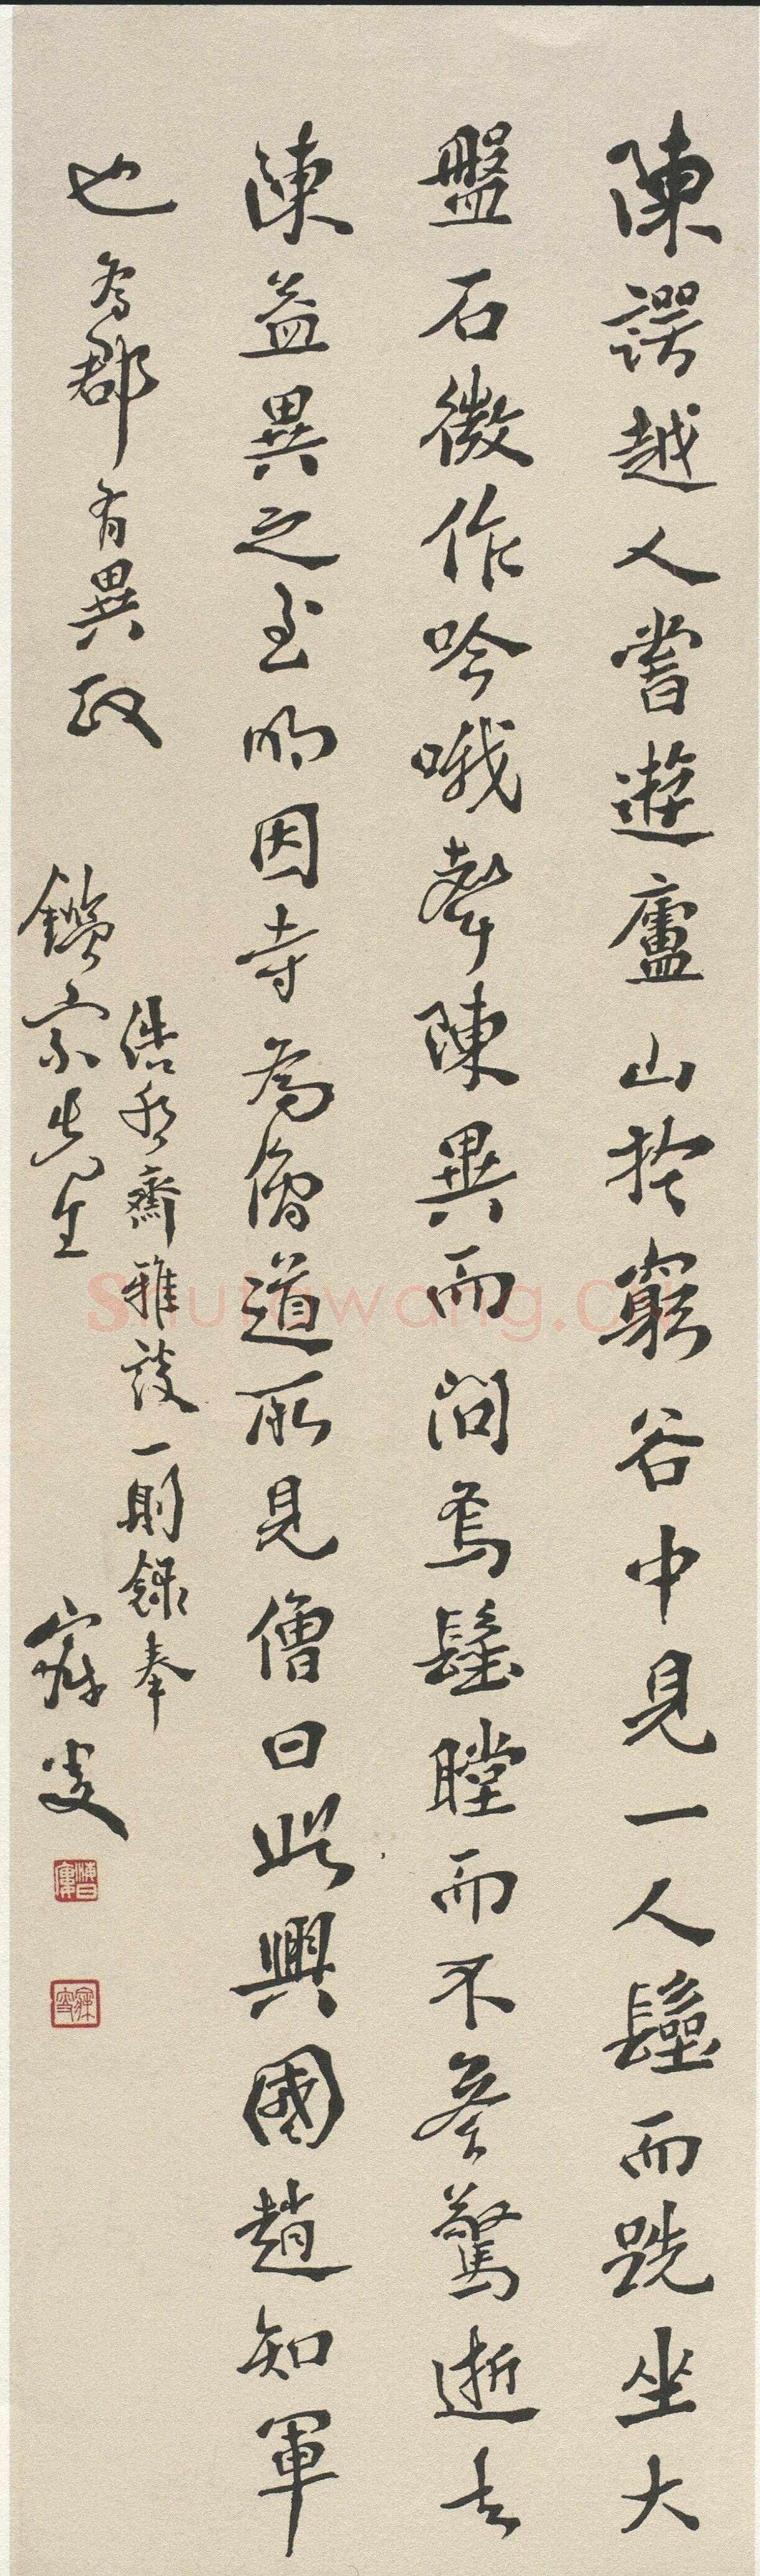 陳諤越人嘗遊廬山於窮谷中見一人髽而跣坐大
盤石微作吟哦聲陳異而問焉髽瞠而不答驚逝去
陳益異之至明因寺為僧道所見僧曰此興國趙知軍
也為郡有異政
浩然齋雅談一則錄奉
鑑宗先生
寐叟
Shufawang.cn